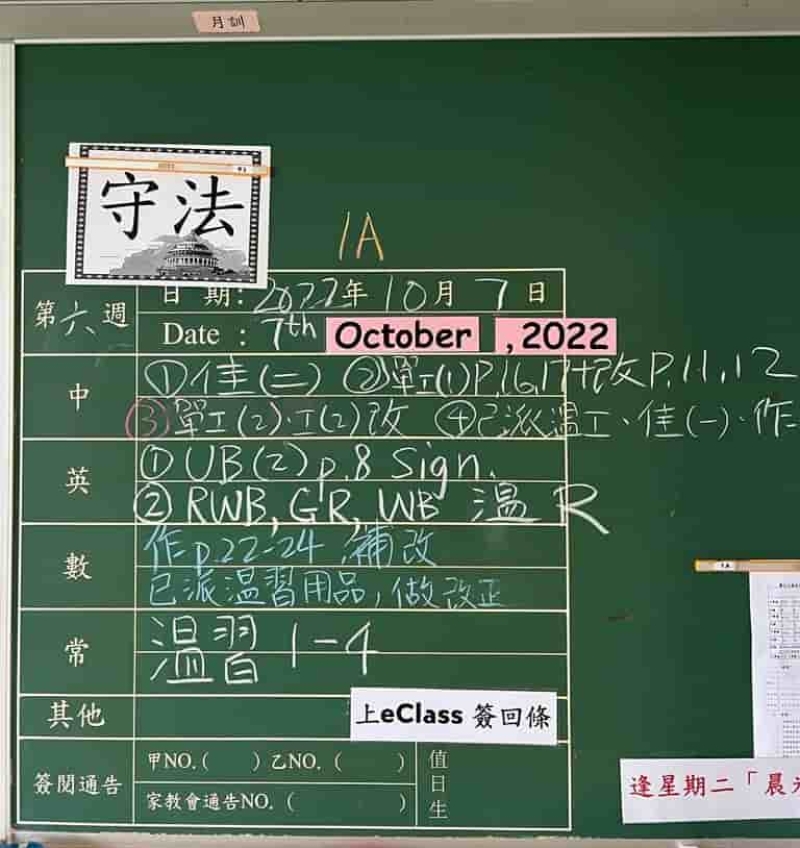 月訓
守法
1A
第六週
日 期: 2022年 10月 7日
Date : 7th October , 2022
中
①佳(二) ②單工(1)P.16,17+改P.11,12
③單工(2)、工(2)改 ④已派溫工、佳(一)、作
英
① UB(2) p.8 Sign.
② RWB, GR, WB 溫 R
數
作p.22-24,補改
已派溫習用品,做改正
常
溫習 1-4
其他
上eClass 簽回條
簽閱通告
甲NO.( ) 乙NO. ( )
家教會通告NO. ( )
值日生
逢星期二「晨